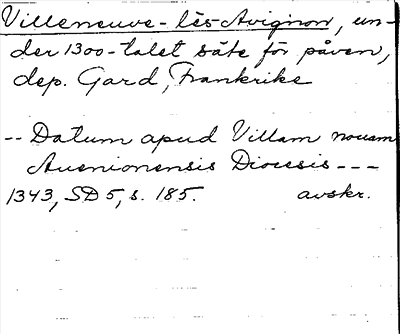 Villeneuve-lès-Avignon, un-
der 1300-talet säte för påven,
dep. Gard, Frankrike
-- Datum apud Villam nouam
Auenionensis Diocesis ---
1343, SD 5, s. 185. avskr.